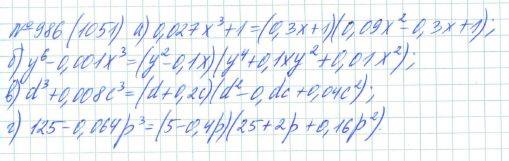 № 986 (1051) а) 0,027x³+1=(0,3x+1)(0,09x²-0,3x+1);
б) y⁶-0,001x³=(y²-0,1x)(y⁴+0,1xy²+0,01x²);
в) d³+0,008c³=(d+0,2c)(d²-0,dc+0,04c²);
г) 125-0,064p³=(5-0,4p)(25+2p+0,16p²).